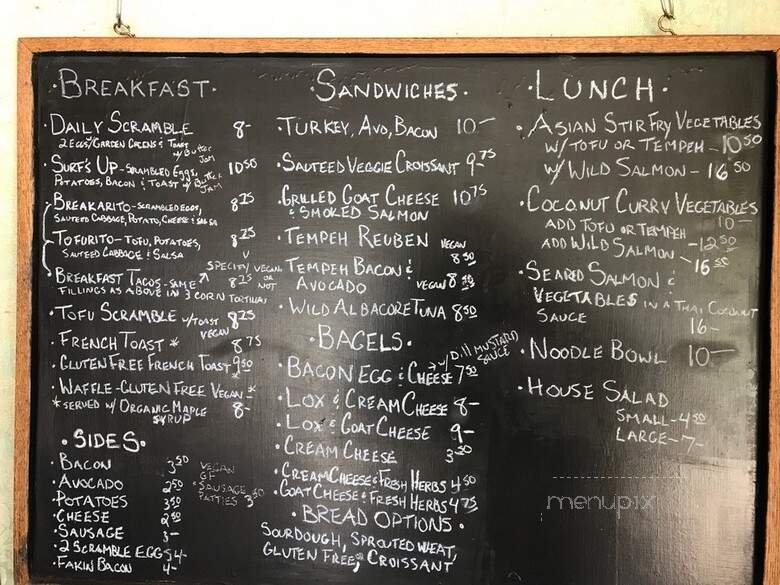 ·BREAKFAST·
·DAILY SCRAMBLE 8-
2 EGGS/GARDEN GREENS & TOAST
W/ BUTTER JAM
·SURF'S UP-SCRAMBLED EGGS, 10 50
POTATOES, BACON & TOAST W/ BUTTER JAM
·BREAKARITO-SCRAMBLED EGGS, 8 25
SAUTEED CABBAGE, POTATO, CHEESE & SALSA
·TOFURITO-TOFU, POTATOES, 8 25
SAUTEED CABBAGE & SALSA V
SPECIFY VEGAN OR NOT
·BREAKFAST TACOS-SAME 8 25
FILLINGS AS ABOVE IN 3 CORN TORTILLAS
·TOFU SCRAMBLE W/TOAST 8 25
VEGAN
·FRENCH TOAST * 8 75
·GLUTEN FREE FRENCH TOAST 9 50
*
·WAFFLE-GLUTEN FREE VEGAN-*
*SERVED W/ ORGANIC MAPLE 8-
SYRUP
·SIDES·
·BACON 3 50
·AVOCADO 2 50
·POTATOES 3 50
·CHEESE 2 50
·SAUSAGE 3-
·2 SCRAMBLE EGGS 4-
·FAKIN BACON 4-
VEGAN
GF
·SAUSAGE
PATTIES 3 50
·SANDWICHES·
·TURKEY, AVO, BACON 10-
·SAUTEED VEGGIE CROISSANT 9-75
·GRILLED GOAT CHEESE 10 75
& SMOKED SALMON
·TEMPEH REUBEN VEGAN 8 50
·TEMPEH BACON &
AVOCADO VEGAN 8 50
·WILD ALBACORE TUNA 8 50
·BAGELS·
·BACON EGG & CHEESE 7 50
W/ DILL MUSTARD SAUCE
·LOX & CREAM CHEESE 8-
·LOX & GOAT CHEESE 9-
·CREAM CHEESE 3-50
·CREAM CHEESE & FRESH HERBS 4 50
·GOAT CHEESE & FRESH HERBS 4 75
·BREAD OPTIONS·
SOURDOUGH, SPROUTED WHEAT,
GLUTEN FREE, CROISSANT
·LUNCH·
·ASIAN STIR FRY VEGETABLES
W/ TOFU OR TEMPEH-10 50
W/ WILD SALMON-16 50
·COCONUT CURRY VEGETABLES
10-
ADD TOFU OR TEMPEH -12 50
ADD WILD SALMON -16 50
·SEARED SALMON &
VEGETABLES IN A THAI COCONUT
SAUCE 16-
·NOODLE BOWL 10-
·HOUSE SALAD
SMALL-4 50
LARGE-7-
menupix